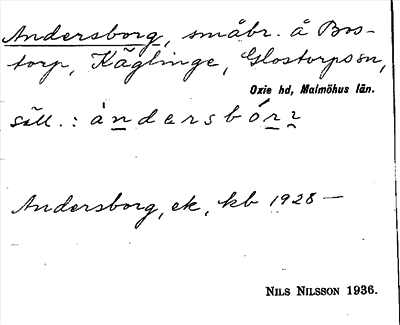 Andersborg, småbr. å Bos-
torp, Käglinge, Glostorps sn,
Oxie hd, Malmöhus län.
säll.: àndersbór
Andersborg, ek, kb 1928 —
NILS NILSSON 1936.